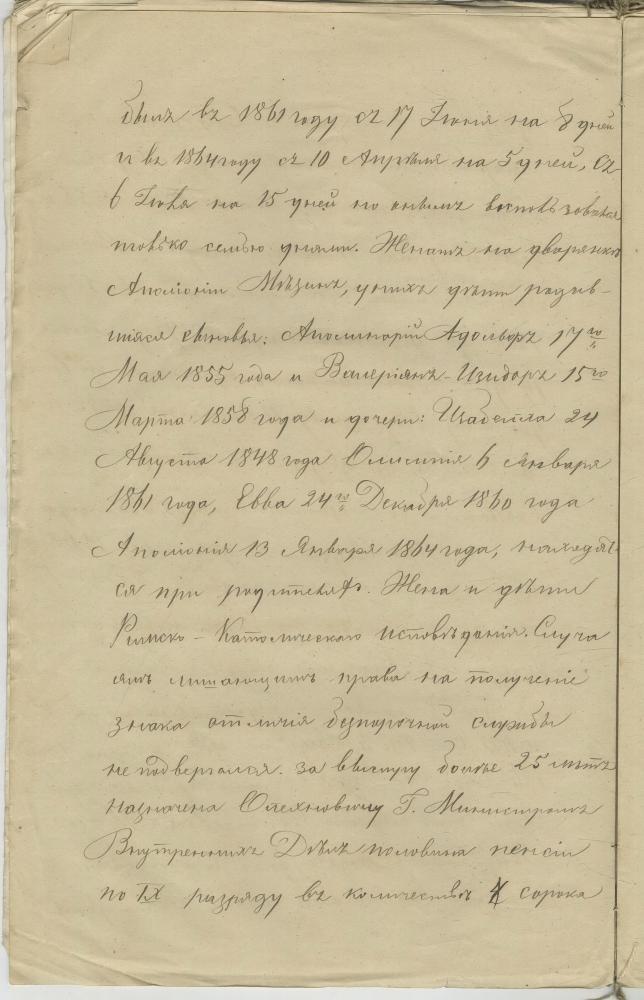 былъ въ 1861 году съ 17 Іюня на 8 дней
и въ 1864 году съ 10 Апрѣля на 5 дней, Съ
6 Іюля на 15 дней но онымъ воспользовался
только семью днями. Женатъ на дворянкѣ
Аполоніи Мѣзинъ, у нихъ дѣти родив-
шіяся сыновья: Аполинарій Адольфъ 17го
Мая 1855 года и Валеріянъ-Изидоръ 15го
Марта 1858 года и дочери: Изабелла 24
Августа 1848 года 6 Января
1861 года, Евва 24го Декабря 1860 года
Аполонія 13 Января 1864 года, находят-
ся при родителяхъ. Жена и дѣти
Римско-Католическаго исповѣданія. Случа
ямъ лишающимъ права на полученіе
знака отличія безпорочной службы
не подвергался. за выслугу болѣе 25 лѣтъ
назначена Олехновичу Г. Министромъ
Внутреннихъ Дѣлъ половина пенсіи
по IX разряду въ количествѣ сорока